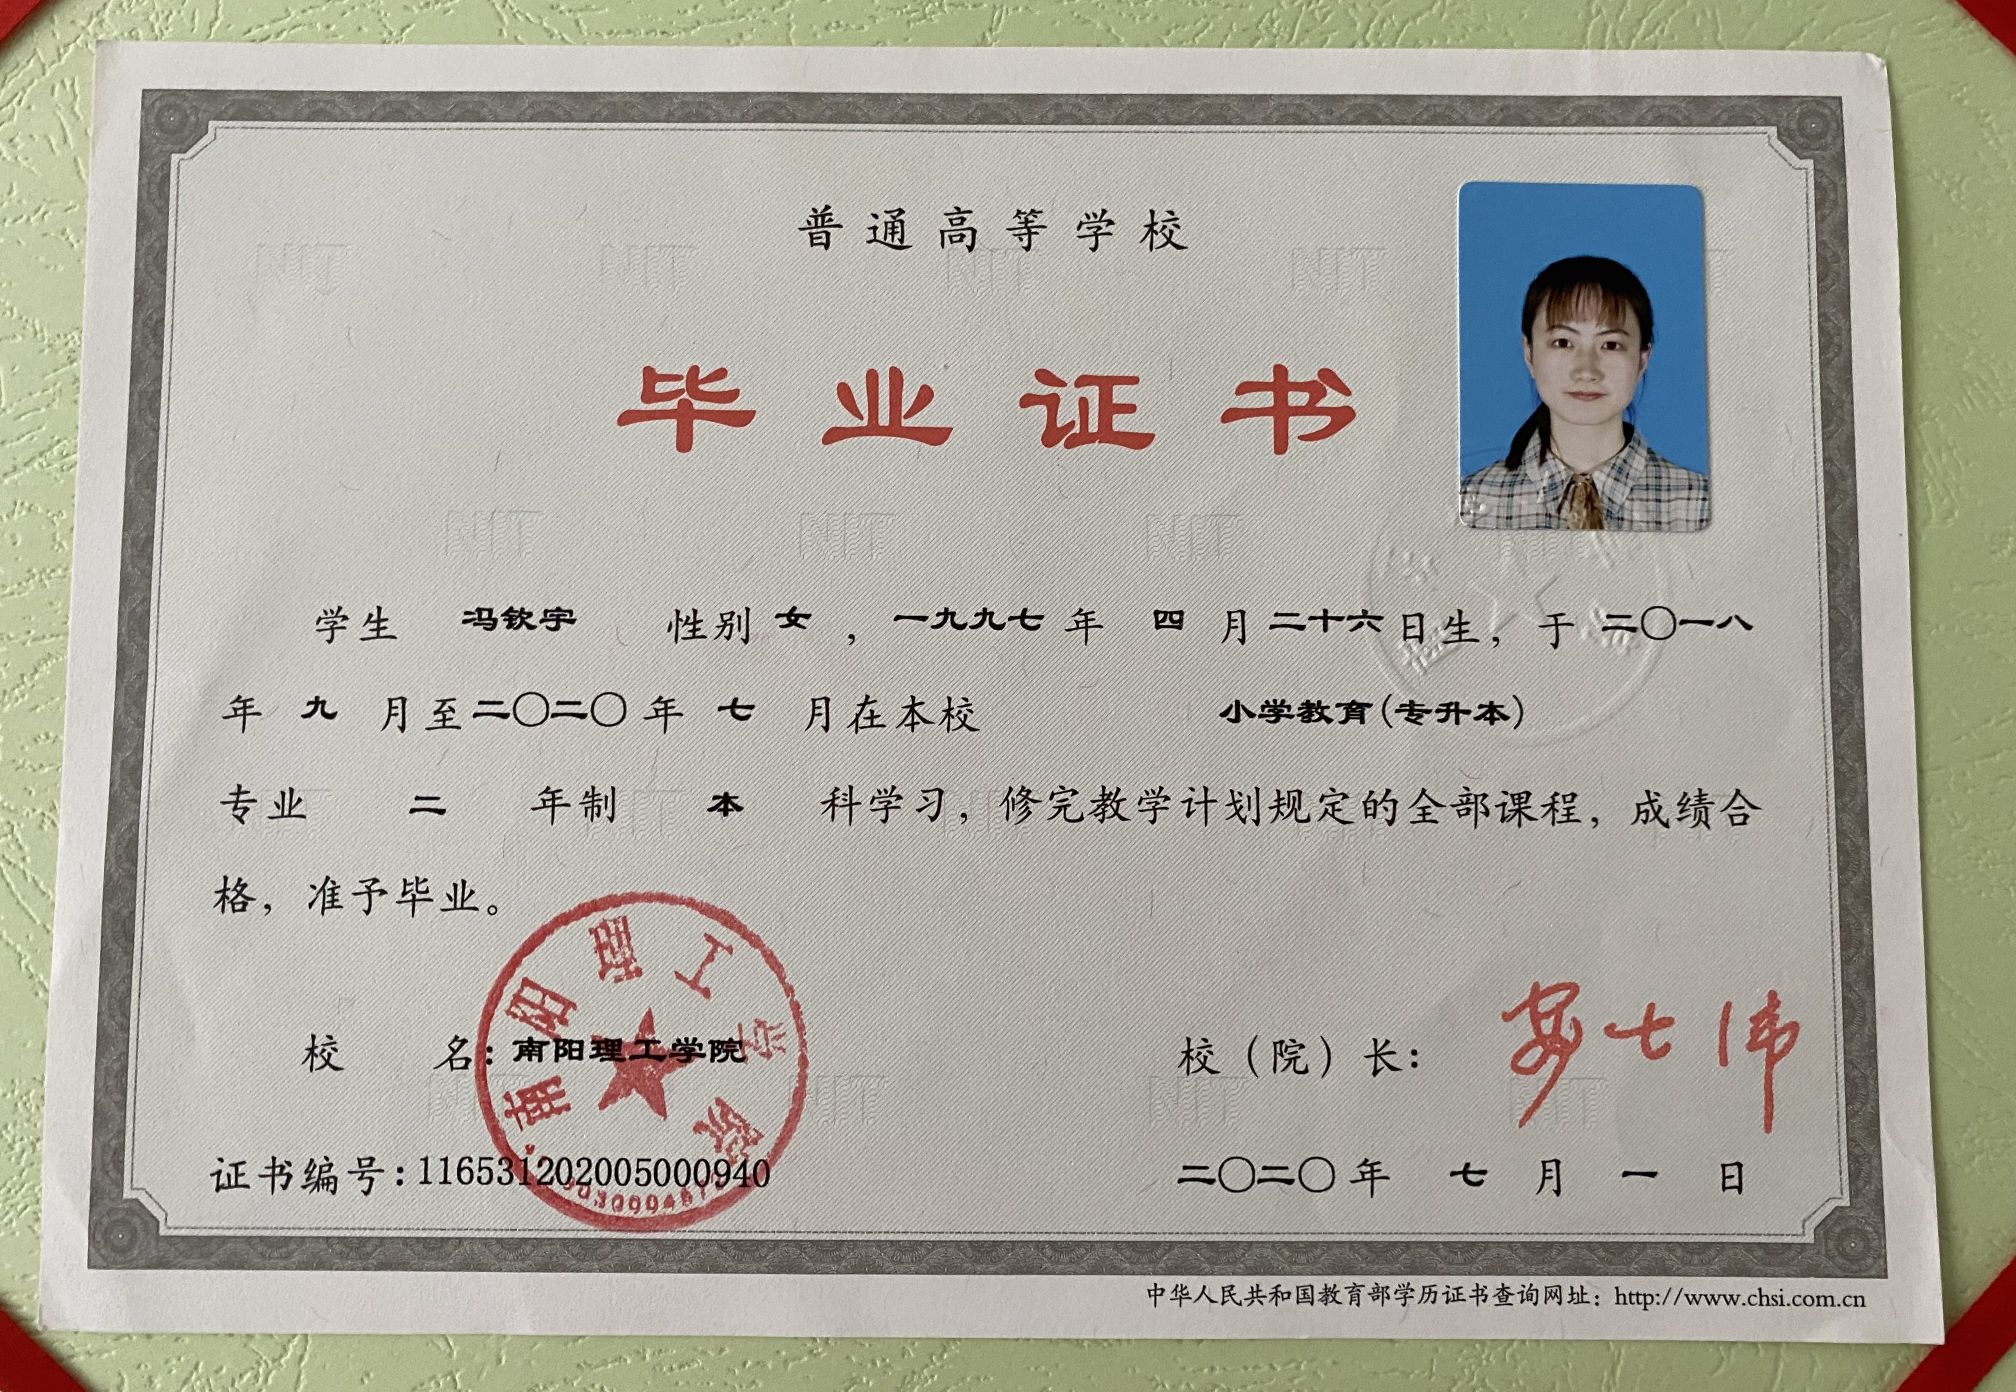 普通高等学校
毕业证书
学生 冯钦宇 性别 女 ，一九九七 年 四 月 二十六 日生，于 二〇一八
年 九 月至 二〇二〇 年 七 月在本校 小学教育(专升本)
专业 二 年制 本 科学习，修完教学计划规定的全部课程，成绩合
格，准予毕业。
南阳理工学院
校 名：南阳理工学院
校（院）长：
证书编号：116531202005000940
二〇二〇 年 七 月 一 日
中华人民共和国教育部学历证书查询网址：http://www.chsi.com.cn
NIT